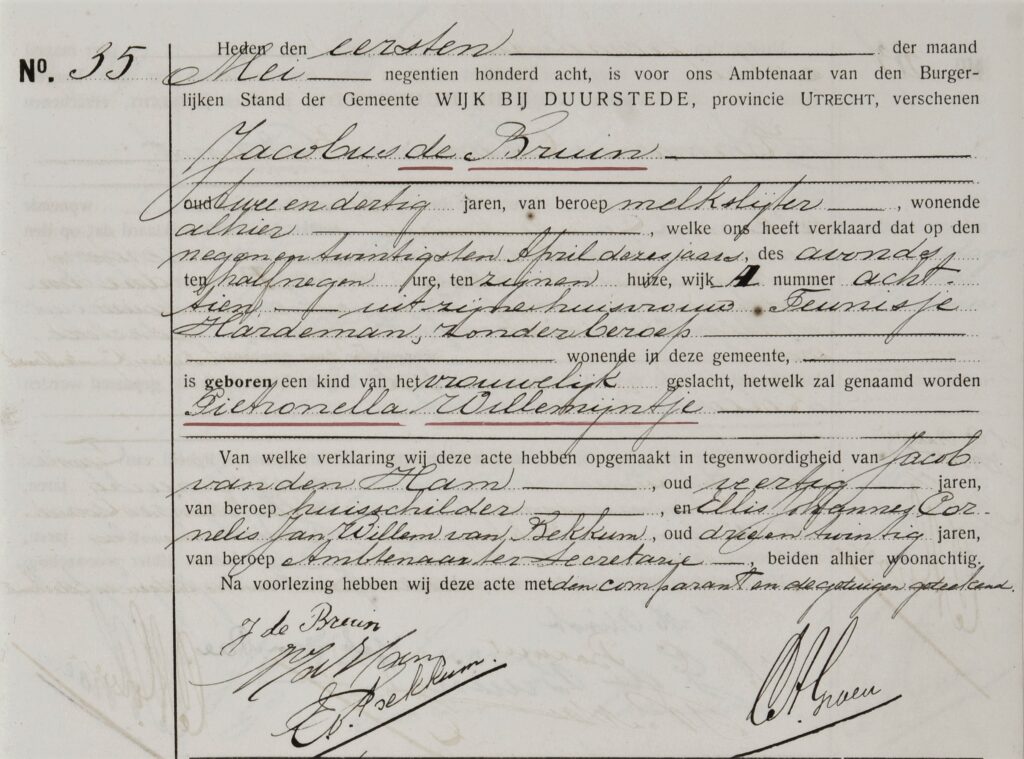 No. 35
Heden den eersten der maand
Mei negentien honderd acht, is voor ons Ambtenaar van den Burger-
lijken Stand der Gemeente WIJK BIJ DUURSTEDE, provincie UTRECHT, verschenen
Jacobus de Bruin
oud twee en dertig jaren, van beroep melkslijter, wonende
alhier, welke ons heeft verklaard dat op den
negenentwintigsten April dezes jaars, des avonds
ten half negen ure, ten zijnen huize, wijk A nummer acht-
tien uit zijne huisvrouw Teunisje
Hardeman, zonder beroep
wonende in deze gemeente,
is geboren een kind van het vrouwelijk geslacht, hetwelk zal genaamd worden
Pietronella Willemijntje
Van welke verklaring wij deze acte hebben opgemaakt in tegenwoordigheid van Jacob
van den Ham, oud veertig jaren,
van beroep huisschilder, en Ellis Johannes Cor-
nelis Jan Willem van Bekkum, oud drie en twintig jaren,
van beroep Ambtenaar ter Secretarie, beiden alhier woonachtig.
Na voorlezing hebben wij deze acte met den comparant en de getuigen geteekend.
J de Bruin
vd Ham
E v. Bekkum.